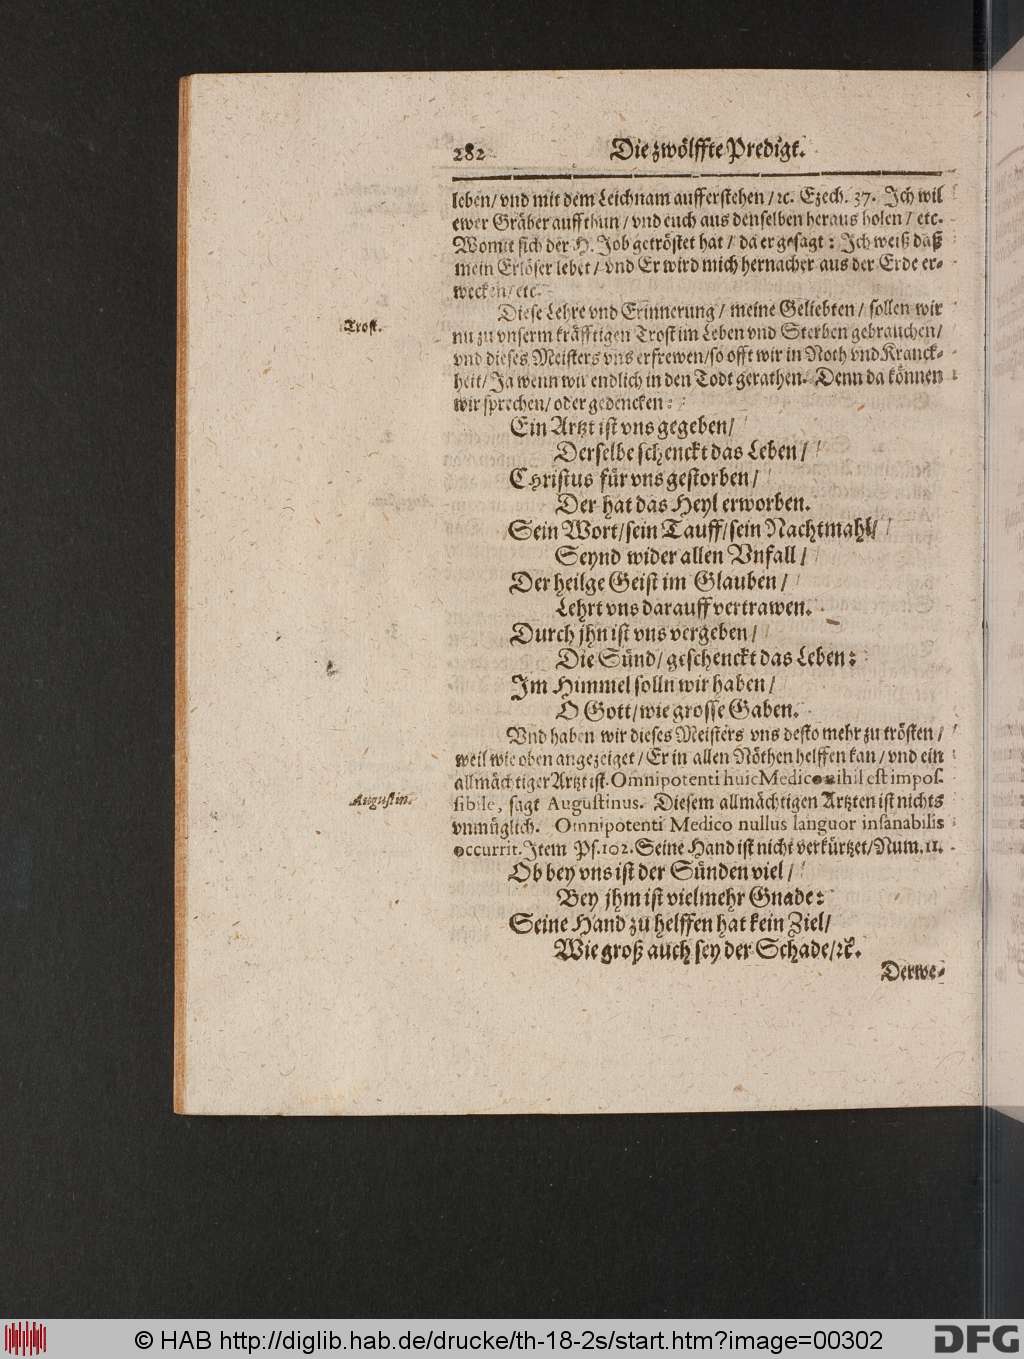 282 Die zwölffte Predigt.
leben/ vnd mit dem Leichnam aufferstehen /ꝛc. Ezech. 37. Ich wil
ewer Gräber auffthun / vnd euch aus denselben heraus holen / etc.
Womit sich der H. Job getröstet hat / da er gesagt: Ich weiß daß
mein Erlöser lebet / vnd Er wird mich hernacher aus der Erde er-
wecken/ etc.
Trost.
Diese Lehre vnd Erinnerung / meine Geliebten / sollen wir
nu zu vnserm kräfftigen Trost im Leben vnd Sterben gebrauchen/
vnd dieses Meisters vns erfrewen/ so offt wir in Noth vnd Kranck-
heit/ Ja wenn wir endlich in den Todt gerathen. Denn da können
wir sprechen/ oder gedencken:
Ein Artzt ist vns gegeben/
Derselbe schenckt das Leben /
Christus für vns gestorben /
Der hat das Heyl erworben.
Sein Wort/ sein Tauff/ sein Nachtmahl/
Seynd wider allen Vnfall /
Der heilge Geist im Glauben /
Lehrt vns darauff vertrawen.
Durch jhn ist vns vergeben /
Die Sünd/ geschenckt das Leben:
Im Himmel solln wir haben /
O Gott/ wie grosse Gaben.
Vnd haben wir dieses Meisters vns desto mehr zu trösten /
weil wie oben angezeiget / Er in allen Nöthen helffen kan / vnd ein
allmächtiger Artzt ist. Omnipotenti huic Medico nihil est impos-
Augustin.
sibile, sagt Augustinus. Diesem allmächtigen Artzten ist nichts
vnmüglich. Omnipotenti Medico nullus languor insanabilis
occurrit. Item Ps. 102. Seine Hand ist nicht verkürtzet/ Num. 11.
Ob bey vns ist der Sünden viel /
Bey jhm ist vielmehr Gnade:
Seine Hand zu helffen hat kein Ziel/
Wie groß auch sey der Schade/ꝛc.
Derwe-
© HAB http://diglib.hab.de/drucke/th-18-2s/start.htm?image=00302
DFG